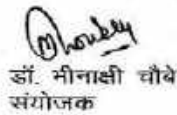 डॉ. मीनाक्षी चौबे
संयोजक